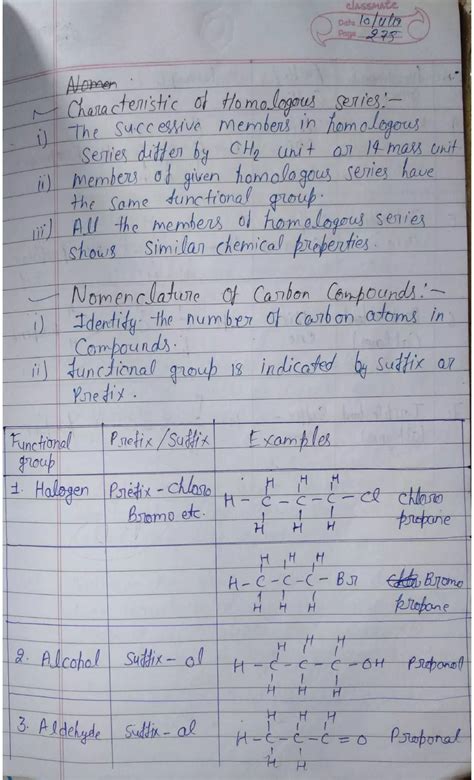 classmate
Date 10/11/19
Page 275
Nomen
Characteristic of Homologous series:-
i) The successive members in homologous
series differ by CH2 unit or 14 mass unit
ii) members of given homologous series have
the same functional group.
iii) All the members of homologous series
shows similar chemical properties.
Nomenclature of Carbon Compounds:-
i) Identify the number of carbon atoms in
Compounds.
ii) functional group is indicated by suffix or
Prefix.
Functional group Prefix/Suffix Examples
1. Halogen Prefix - Chloro
Bromo etc.
H H H
H - C - C - C - Cl chloro
H H H propane
H H H
H - C - C - C - Br Bromo
H H H propane
2. Alcohol Suffix - ol
H H H
H - C - C - C - OH Propanol
H H H
3. Aldehyde Suffix - al
H H H
H - C - C - C = O Propanal
H H